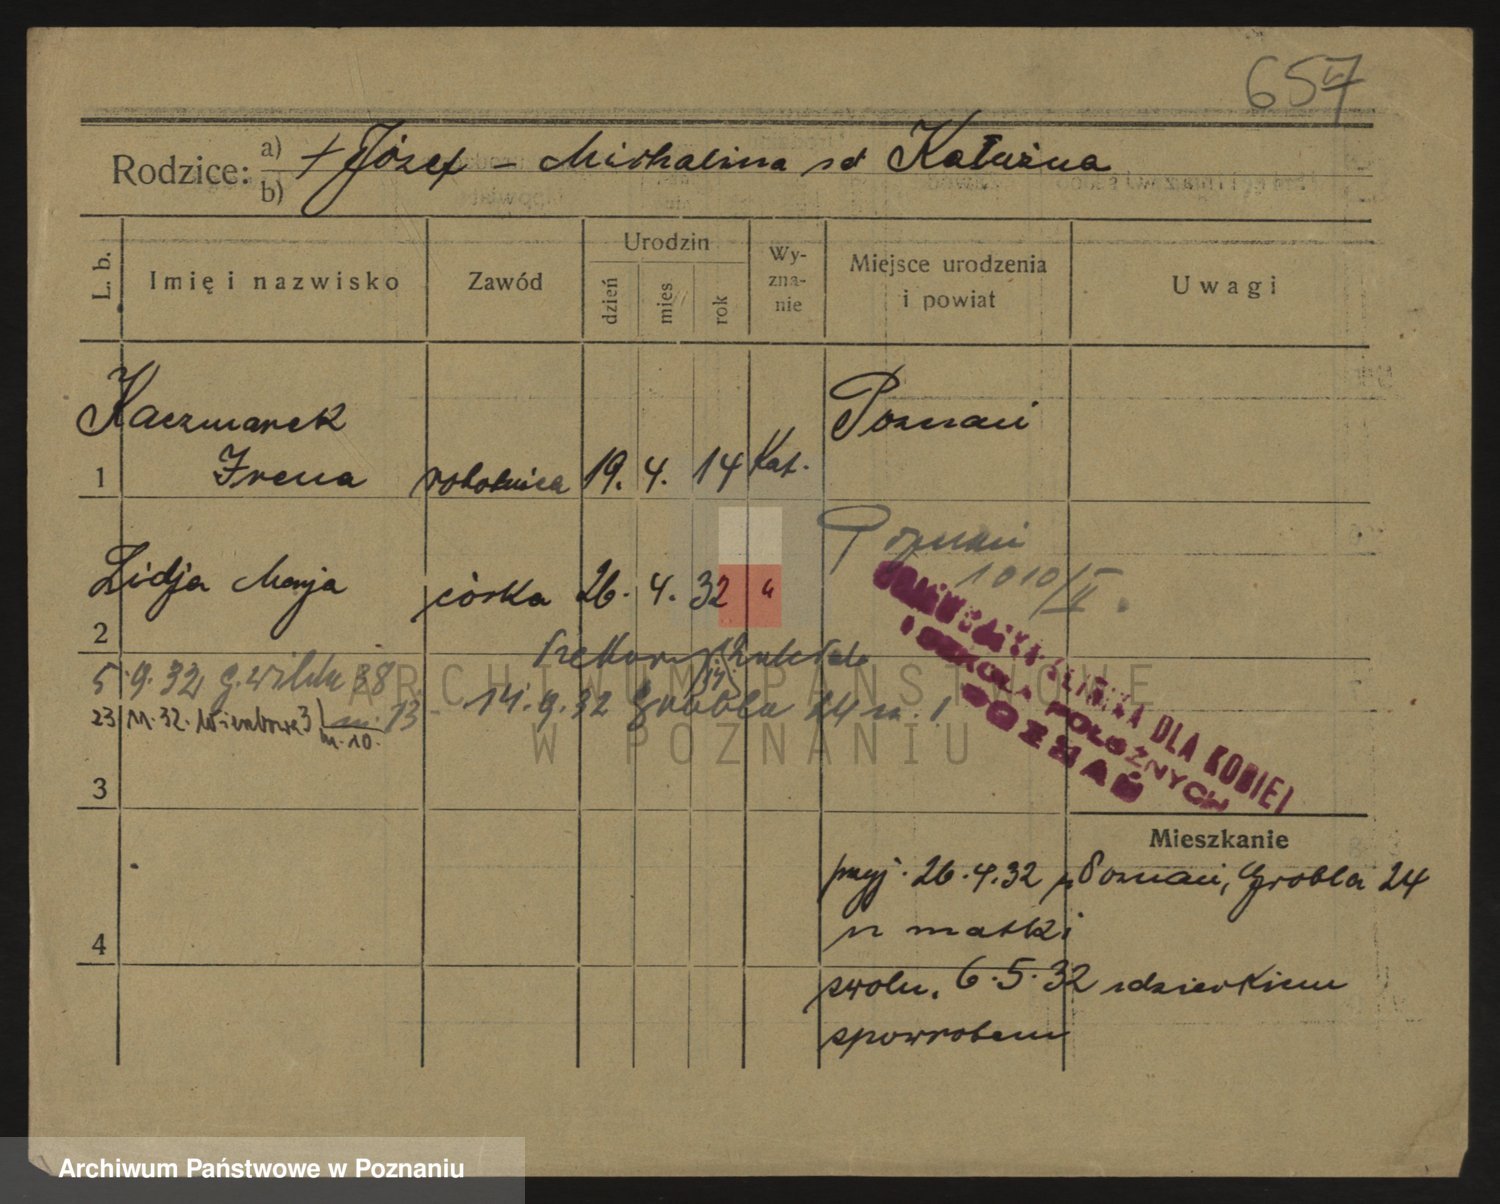 657
Rodzice: a) + Józef – Michalina zd Kałużna
b)
L. b. Imię i nazwisko Zawód Urodzin dzień mies rok Wy-zna-nie Miejsce urodzenia i powiat Uwagi
Kaczmarek Poznań
1 Irena robotnica 19. 4. 14 Kat.
Poznań
Lidja Marja córka 26. 4. 32 "
1010/II.
2
5.9.32 g. wilda 38
m. 13 14.9.32 Grobla 24 m. 1
23 11.32 m. 10.
KLINIKA DLA KOBIET
I SZKOŁA POŁOŻNYCH
POZNAŃ
3
Mieszkanie
przyj. 26.4.32 Poznań, Grobla 24
u matki
4
zwoln. 6.5.32 z dzieckiem
spowrotem
ARCHIWUM PAŃSTWOWE
W POZNANIU
Archiwum Państwowe w Poznaniu